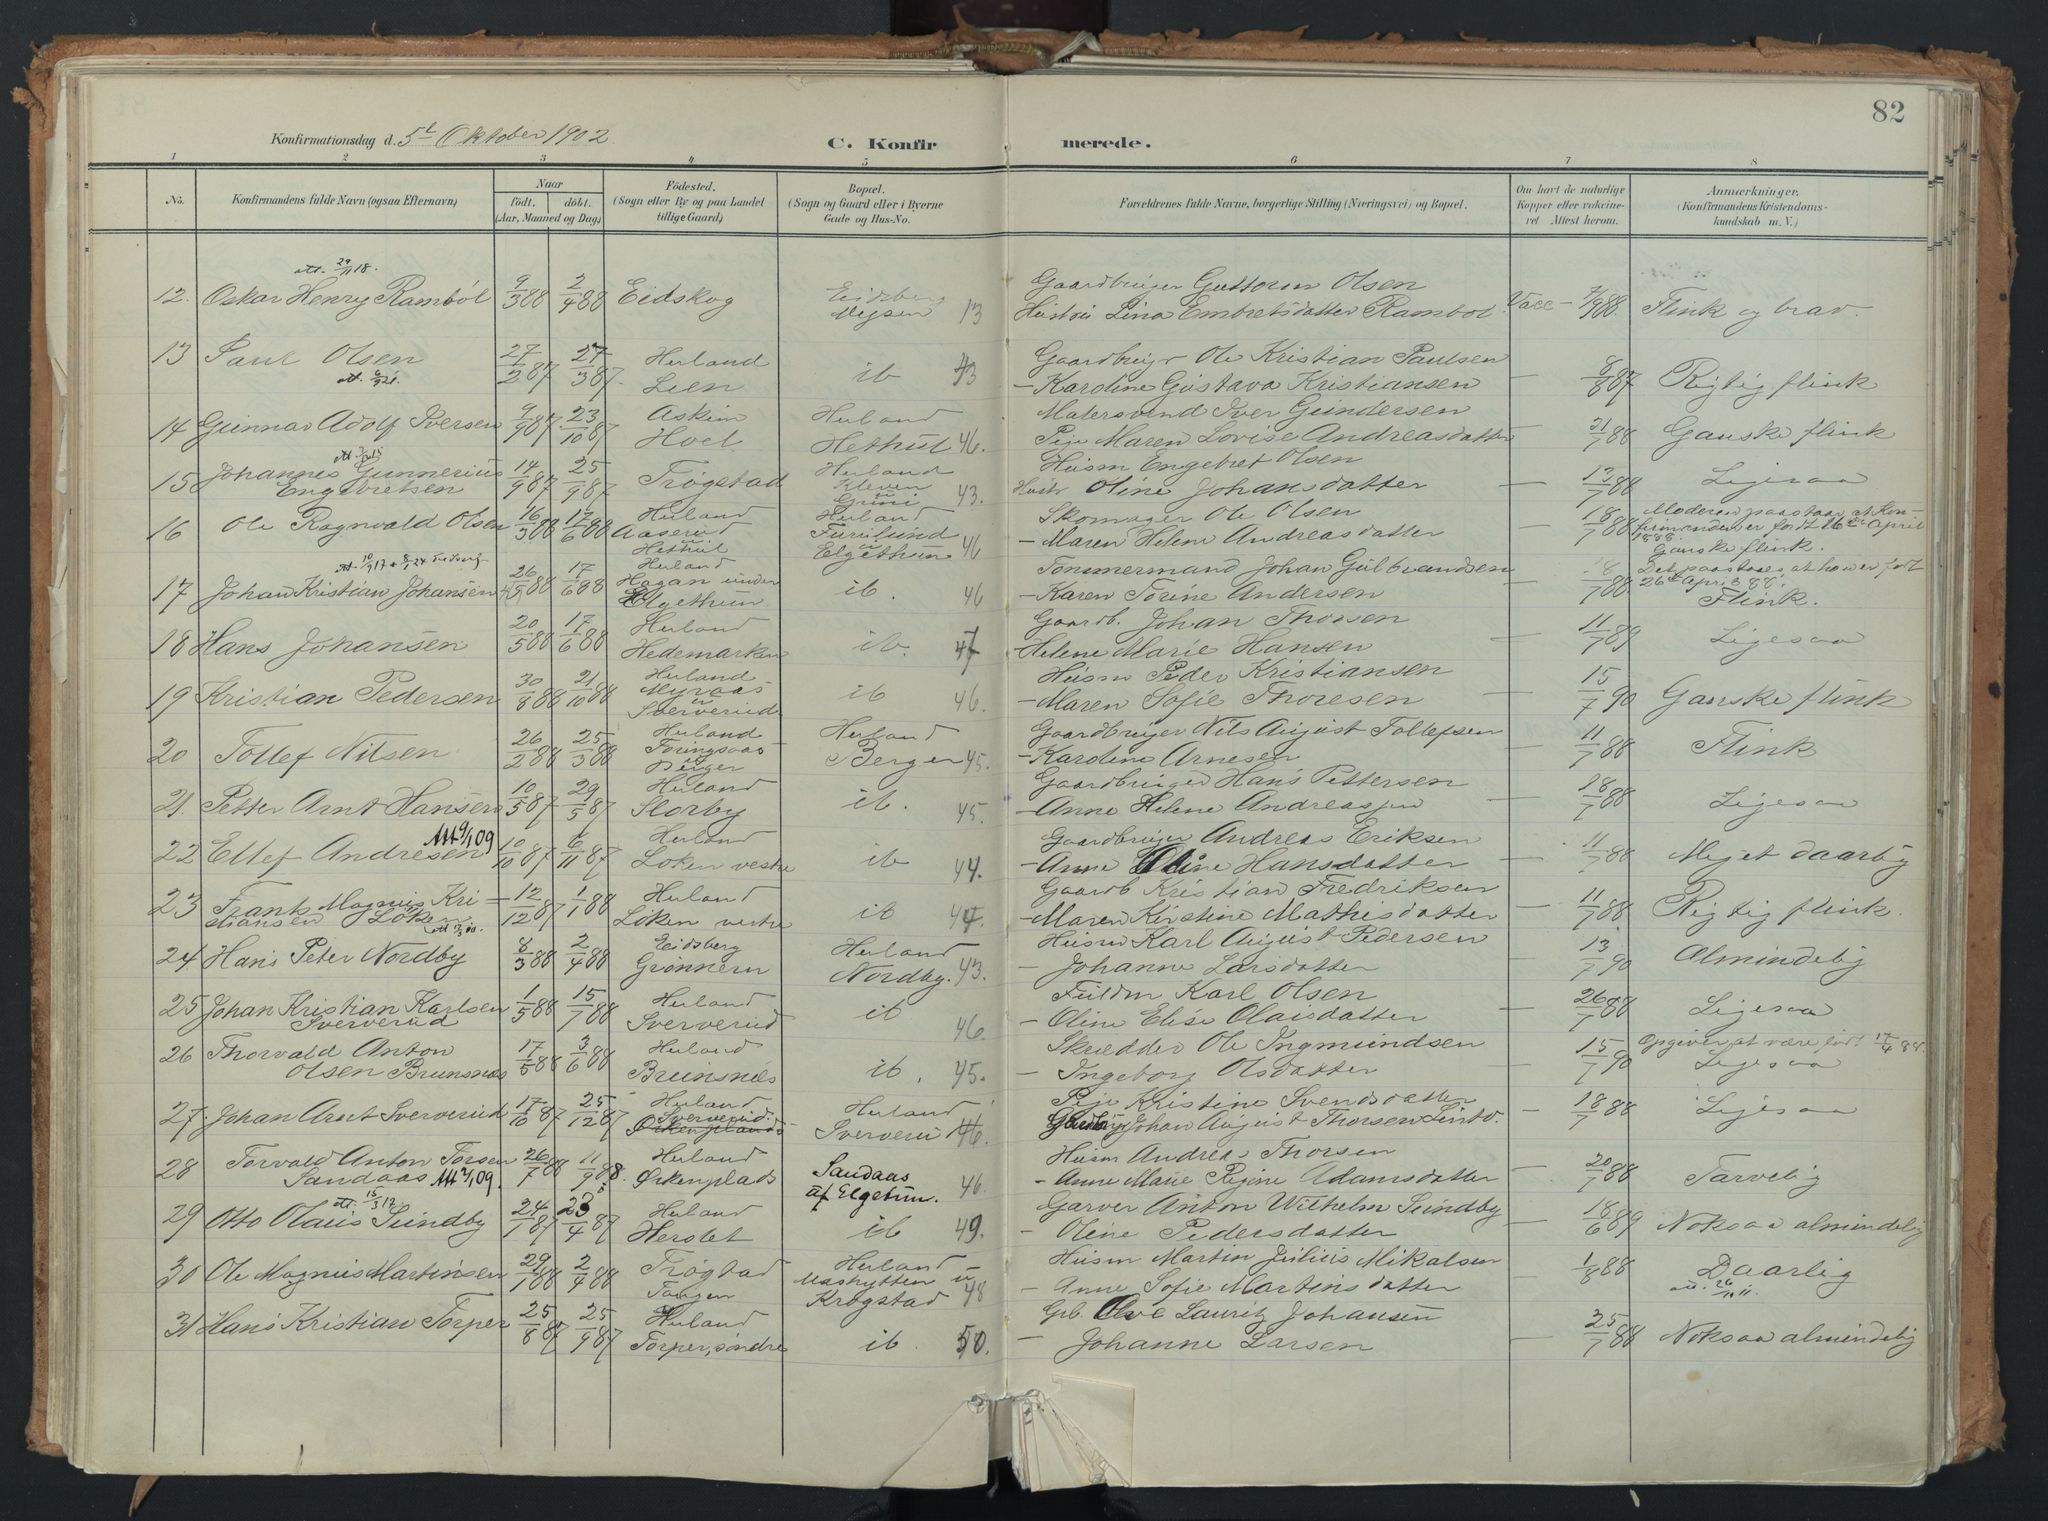 82
Konfirmationsdag d. 5t Oktober 1902
C. Konfir merede.
1 2 3 4 5 6 7 8
No. Konfirmandens fulde Navn (ogsaa Efternavn) Naar födt. döbt. (Aar, Maaned og Dag) Födested. (Sogn eller By og paa Landet tillige Gaard) Bopæl. (Sogn og Gaard eller i Byerne Gade og Hus-No. Forældrenes fulde Navne, borgerlige Stilling (Næringsvei) og Bopæl. Om havt de naturlige Kopper eller vaccineret Attest herom. Anmærkninger. (Konfirmandens Kristendomskundskab m. V.)
att. 29/11 18.
12. Oskar Henry Rambøl 9/3 88 2/4 88 Eidskog Eidsberg Mysen 13 Gaardbruger Guttorm Olsen
Hustru Lina Embretsdatter Rambøl. Vacc - 7/9 88. Flink og brav.
13 Paul Olsen 27/2 87 27/3 87. Herland Lien ib 43 Gaardbruger Ole Kristian Paulsen
att. 6/9 21. - Karoline Gustava Kristiansen - 8/8 87 Rigtig flink
14 Gunnar Adolf Iversen 9/9 87 23/10 87 Askim Hoel Herland Hethul 46. Matersvend Iver Gundersen
Pige Maren Lovise Andreasdatter - 21/7 88 Ganske flink
15 Johannes Gunnerius Engebretsen 14/9 87 25/9 87 Trøgstad Herland Kleven u Grini 43. Husm Engebret Olsen
Hustr Oline Johansdatter - 13/7 88 Ligesaa
16 Ole Ragnvald Olsen 16/3 88 17/6 88 Herland Aaserud u Hethul Herland Furulund u Elgethun 46 Skomager Ole Olsen
- Maren Helene Andreasdatter - 18/7 88 Moderen paastaar at Konfirmanden er født 16de April 1888. Ganske flink.
17 Johan Kristian Johansen 26/5 88 17/6 88 Herland Hagan under Elgethun ib. 46 Tømmermand Johan Gulbrandsen
- Karen Torine Andersen - 18/7 88 Det paastaaes at han er født 26de April 88. Flink.
18 Hans Johansen 20/5 88 17/6 88 Herland Hedemarken ib. 47 Gaardb. Johan Thoresen
Helene Marie Hansen - 11/7 89 Ligesaa
19 Kristian Pedersen 30/8 88 21/10 88 Herland Myraas u Sververud ib 46. Husm Peder Kristiansen
- Maren Sofie Thoresen - 15/7 90 Ganske flink
20 Tollef Nilsen 26/2 88 25/3 88 Herland Toringsaas u Berger Herland Berger 45. Gaardbruger Nils August Tollefsen
- Karoline Arnesen - 11/7 88 Flink
21. Petter Arnt Hansen 10/5 87 29/5 87 Herland Slorby ib. 45. Gaardbruger Hans Pettersen
- Anne Helene Andreassen - 18/7 88 Ligesaa
22 Ellef Andresen Att 9/1 09 10/10 87 6/11 87 Herland Løken vestre ib 44. Gaardbruger Andreas Eriksen
- Anne Oline Hansdatter - 11/7 88 Meget daarlig
23 Frank Magnus Kristiansen Løken 12/12 87 1/1 88 Herland Løken vestre ib 44. Gaardb Kristian Fredriksen
- Maren Kirstine Mathisdatter - 11/7 88. Rigtig flink.
24 Hans Peter Nordby 8/3 88 2/4 88 Eidsberg Grønnern Herland Nordby. 43. Husm Karl August Pedersen
- Johanne Larsdatter - 13/7 90 Almindelig
25 Johan Kristian Karlsen Sververud 1/5 88 15/7 88 Herland Sververud ib. 46. Fuldm Karl Olsen
- Oline Elise Olausdatter - 26/7 88 Ligesaa
26 Thorvald Anton Olsen Brunsnæs 17/5 88 3/6 88 Herland Brunsnæs ib. 45. Skrædder Ole Ingmundsen
- Ingeborg Olsdatter - 15/7 90 Opgiver at være født 17/4 88. Ligesaa
27. Johan Arnt Sververud 17/10 87 25/12 87 Herland Sververud. Ørkenplads Herland Sververud 46. Pige Kristine Svendsdatter
Johan August Thorsen - 18/7 88 Ligesaa
28 Torvald Anton Torsen Sandaas Att 2/1 09. 26/7 88 11/9 88. Herland Ørkenplads Sandaas af Elgetun. 46. Husm Andreas Thorsen
- Anne Marie Regine Adamsdatter - 20/7 88 Tarvelig
att. 15/3 12.
29 Otto Olaus Sundby 24/1 87 23/4 87 Herland Herslet ib 49. Garver Anton Wilhelm Sundby
- Oline Pedersdatter - 18/6 89 Noksaa almindelig
30 Ole Magnus Martinsen 29/1 88 2/4 88 Trøgstad Tangen Herland Mashytten u Krogstad 48 Husm Martin Julius Mikalsen
- Anne Sofie Martinsdatter - 1/8 88 Daarlig
att. 26/10 11.
31 Hans Kristian Torper 25/8 87 25/9 87 Herland Torper, søndre ib. 50. Grb. Olve Lauritz Johansen
- Johanne Larsen - 25/7 88 Noksaa almindelig